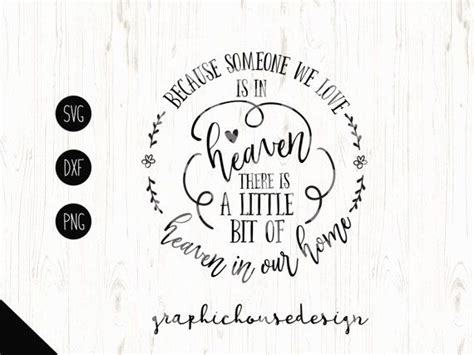 BECAUSE SOMEONE WE LOVE
IS IN
heaven
THERE IS
A LITTLE
BIT OF
heaven in our home
SVG
DXF
PNG
graphichousedesign